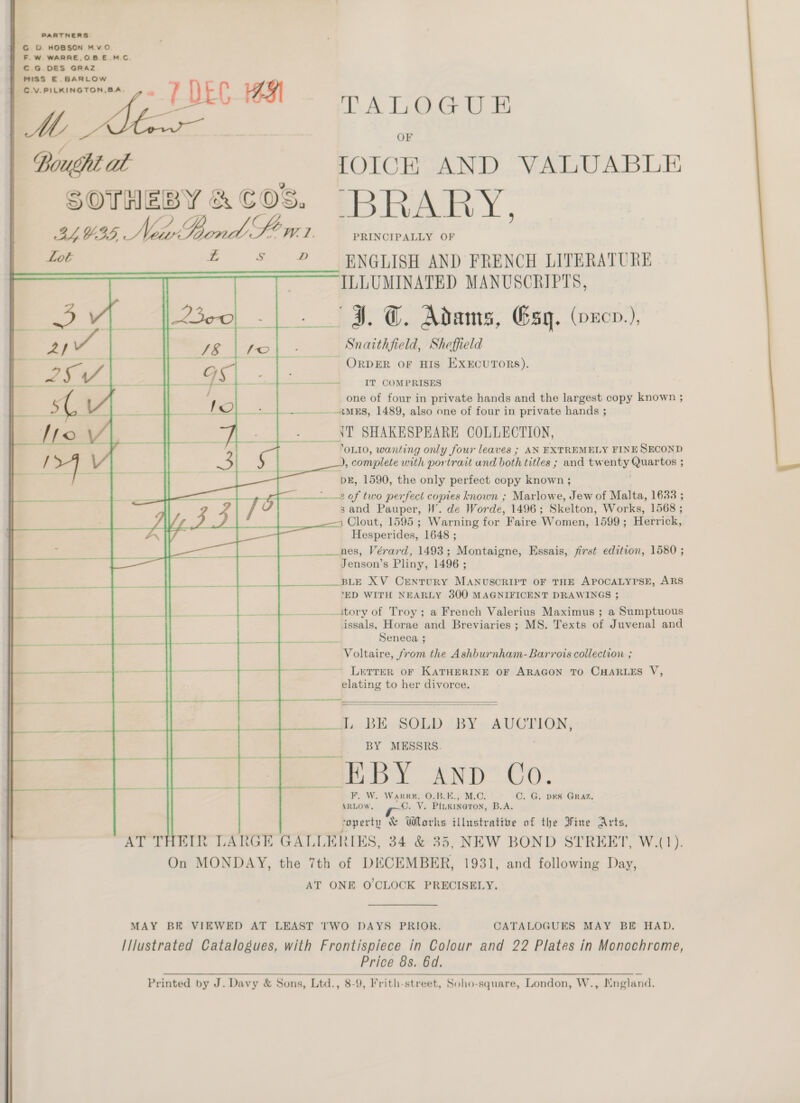 PARTNERS
G. D. HOBSON M.V.O
F. W. WARRE, O.B.E. M.C.
C. G. DES GRAZ
MISS E. BARLOW
C. V. PILKINGTON, B.A.
7 DEC 1931
M
Bought at
SOTHEBY & COS.
34 & 35, New Bond St W. 1.
Lot £ S D
3 2300 - -
21 18 10 -
25 95 - -
56 10 - -
110 7 - -
154 3 5
TALOGUE
OF
IOICE AND VALUABLE
BRARY,
PRINCIPALLY OF
ENGLISH AND FRENCH LITERATURE
ILLUMINATED MANUSCRIPTS,
J. T. Adams, Esq. (DECD.),
Snaithfield, Sheffield
ORDER OF HIS EXECUTORS).
IT COMPRISES
one of four in private hands and the largest copy known ;
AMES, 1489, also one of four in private hands ;
NT SHAKESPEARE COLLECTION,
FOLIO, wanting only four leaves ; AN EXTREMELY FINE SECOND
), complete with portrait and both titles ; and twenty Quartos ;
DE, 1590, the only perfect copy known ;
e of two perfect copies known ; Marlowe, Jew of Malta, 1633 ;
s and Pauper, W. de Worde, 1496 ; Skelton, Works, 1568 ;
Clout, 1595 ; Warning for Faire Women, 1599 ; Herrick,
Hesperides, 1648 ;
nes, Vérard, 1493 ; Montaigne, Essais, first edition, 1580 ;
Jenson's Pliny, 1496 ;
BLE XV CENTURY MANUSCRIPT OF THE APOCALYPSE, ARS
ED WITH NEARLY 300 MAGNIFICENT DRAWINGS ;
itory of Troy ; a French Valerius Maximus ; a Sumptuous
issals, Horae and Breviaries ; MS. Texts of Juvenal and
Seneca ;
Voltaire, from the Ashburnham-Barrois collection ;
LETTER OF KATHERINE OF ARAGON TO CHARLES V,
elating to her divorce.
L BE SOLD BY AUCTION,
BY MESSRS.
EBY AND CO.
F. W. WARRE, O.B.E., M.C. C. G. DES GRAZ.
ARLOW. C. V. PILKINGTON, B.A.
roperty & Works illustrative of the Fine Arts,
AT THEIR LARGE GALLERIES, 34 & 35, NEW BOND STREET, W.(1).
On MONDAY, the 7th of DECEMBER, 1931, and following Day,
AT ONE O'CLOCK PRECISELY.
MAY BE VIEWED AT LEAST TWO DAYS PRIOR. CATALOGUES MAY BE HAD.
Illustrated Catalogues, with Frontispiece in Colour and 22 Plates in Monochrome,
Price 8s. 6d.
Printed by J. Davy & Sons, Ltd., 8-9, Frith-street, Soho-square, London, W., England.